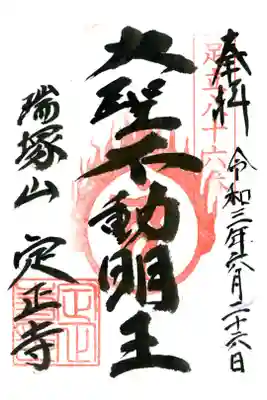 奉拝
令和三年六月二十六日
大聖不動明王
瑞塚山 定正寺